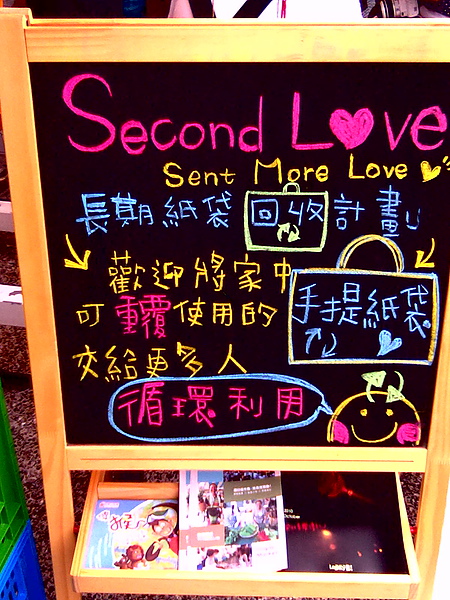 Second Love
Sent More Love
長期紙袋回收計劃
歡迎將家中
可重覆使用的
手提紙袋
交給更多人
循環利用